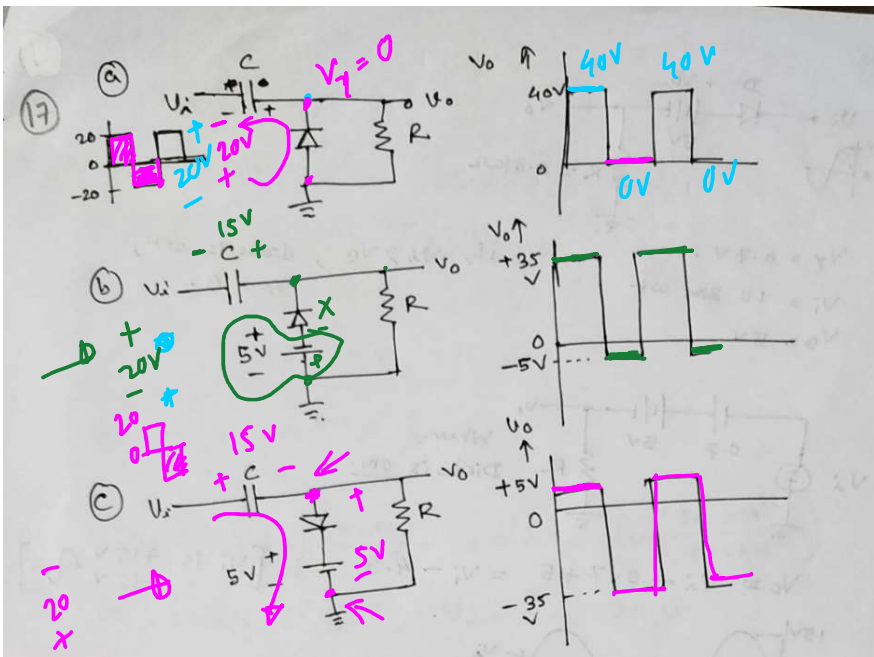 17
a
C
Vi
Vγ = 0
Vo
R
20
0
-20
+ -
20V
20V
+
-
Vo ↑
40V
40V
40V
0
0V
0V
15V
- C +
b
Vi
Vo
X
R
+
5V
-
+
20V
-
Vo ↑
+35
V
0
-5V
20
0
15V
+ C -
c
Vi
Vo
+
R
5V
-
+
5V
-
-
20
X
Vo
↑
+5V
0
-35
V